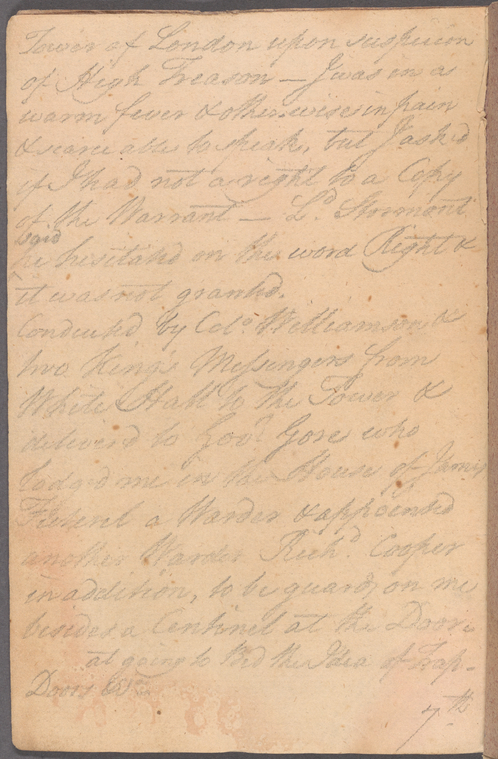 Tower of London upon suspicion
of High Treason — I was in a
warm fever & otherwise in pain
& scarce able to speak, but I ask'd
if I had not a right to a Copy
of the Warrant — Ld. Stormont
said
he hesitated on the word Right &
it was not granted.
Conducted by Colo. Williamson &
two King's Messengers from
White Hall to the Tower &
deliver'd to Govr. Gore who
lodged me in the House of James
a Warder & appointed
another Warder Richd. Cooper
in addition, to be guards on me
besides a Centinel at the Door.
at going to Bed the Idea of Trap-
Doors &c
7th